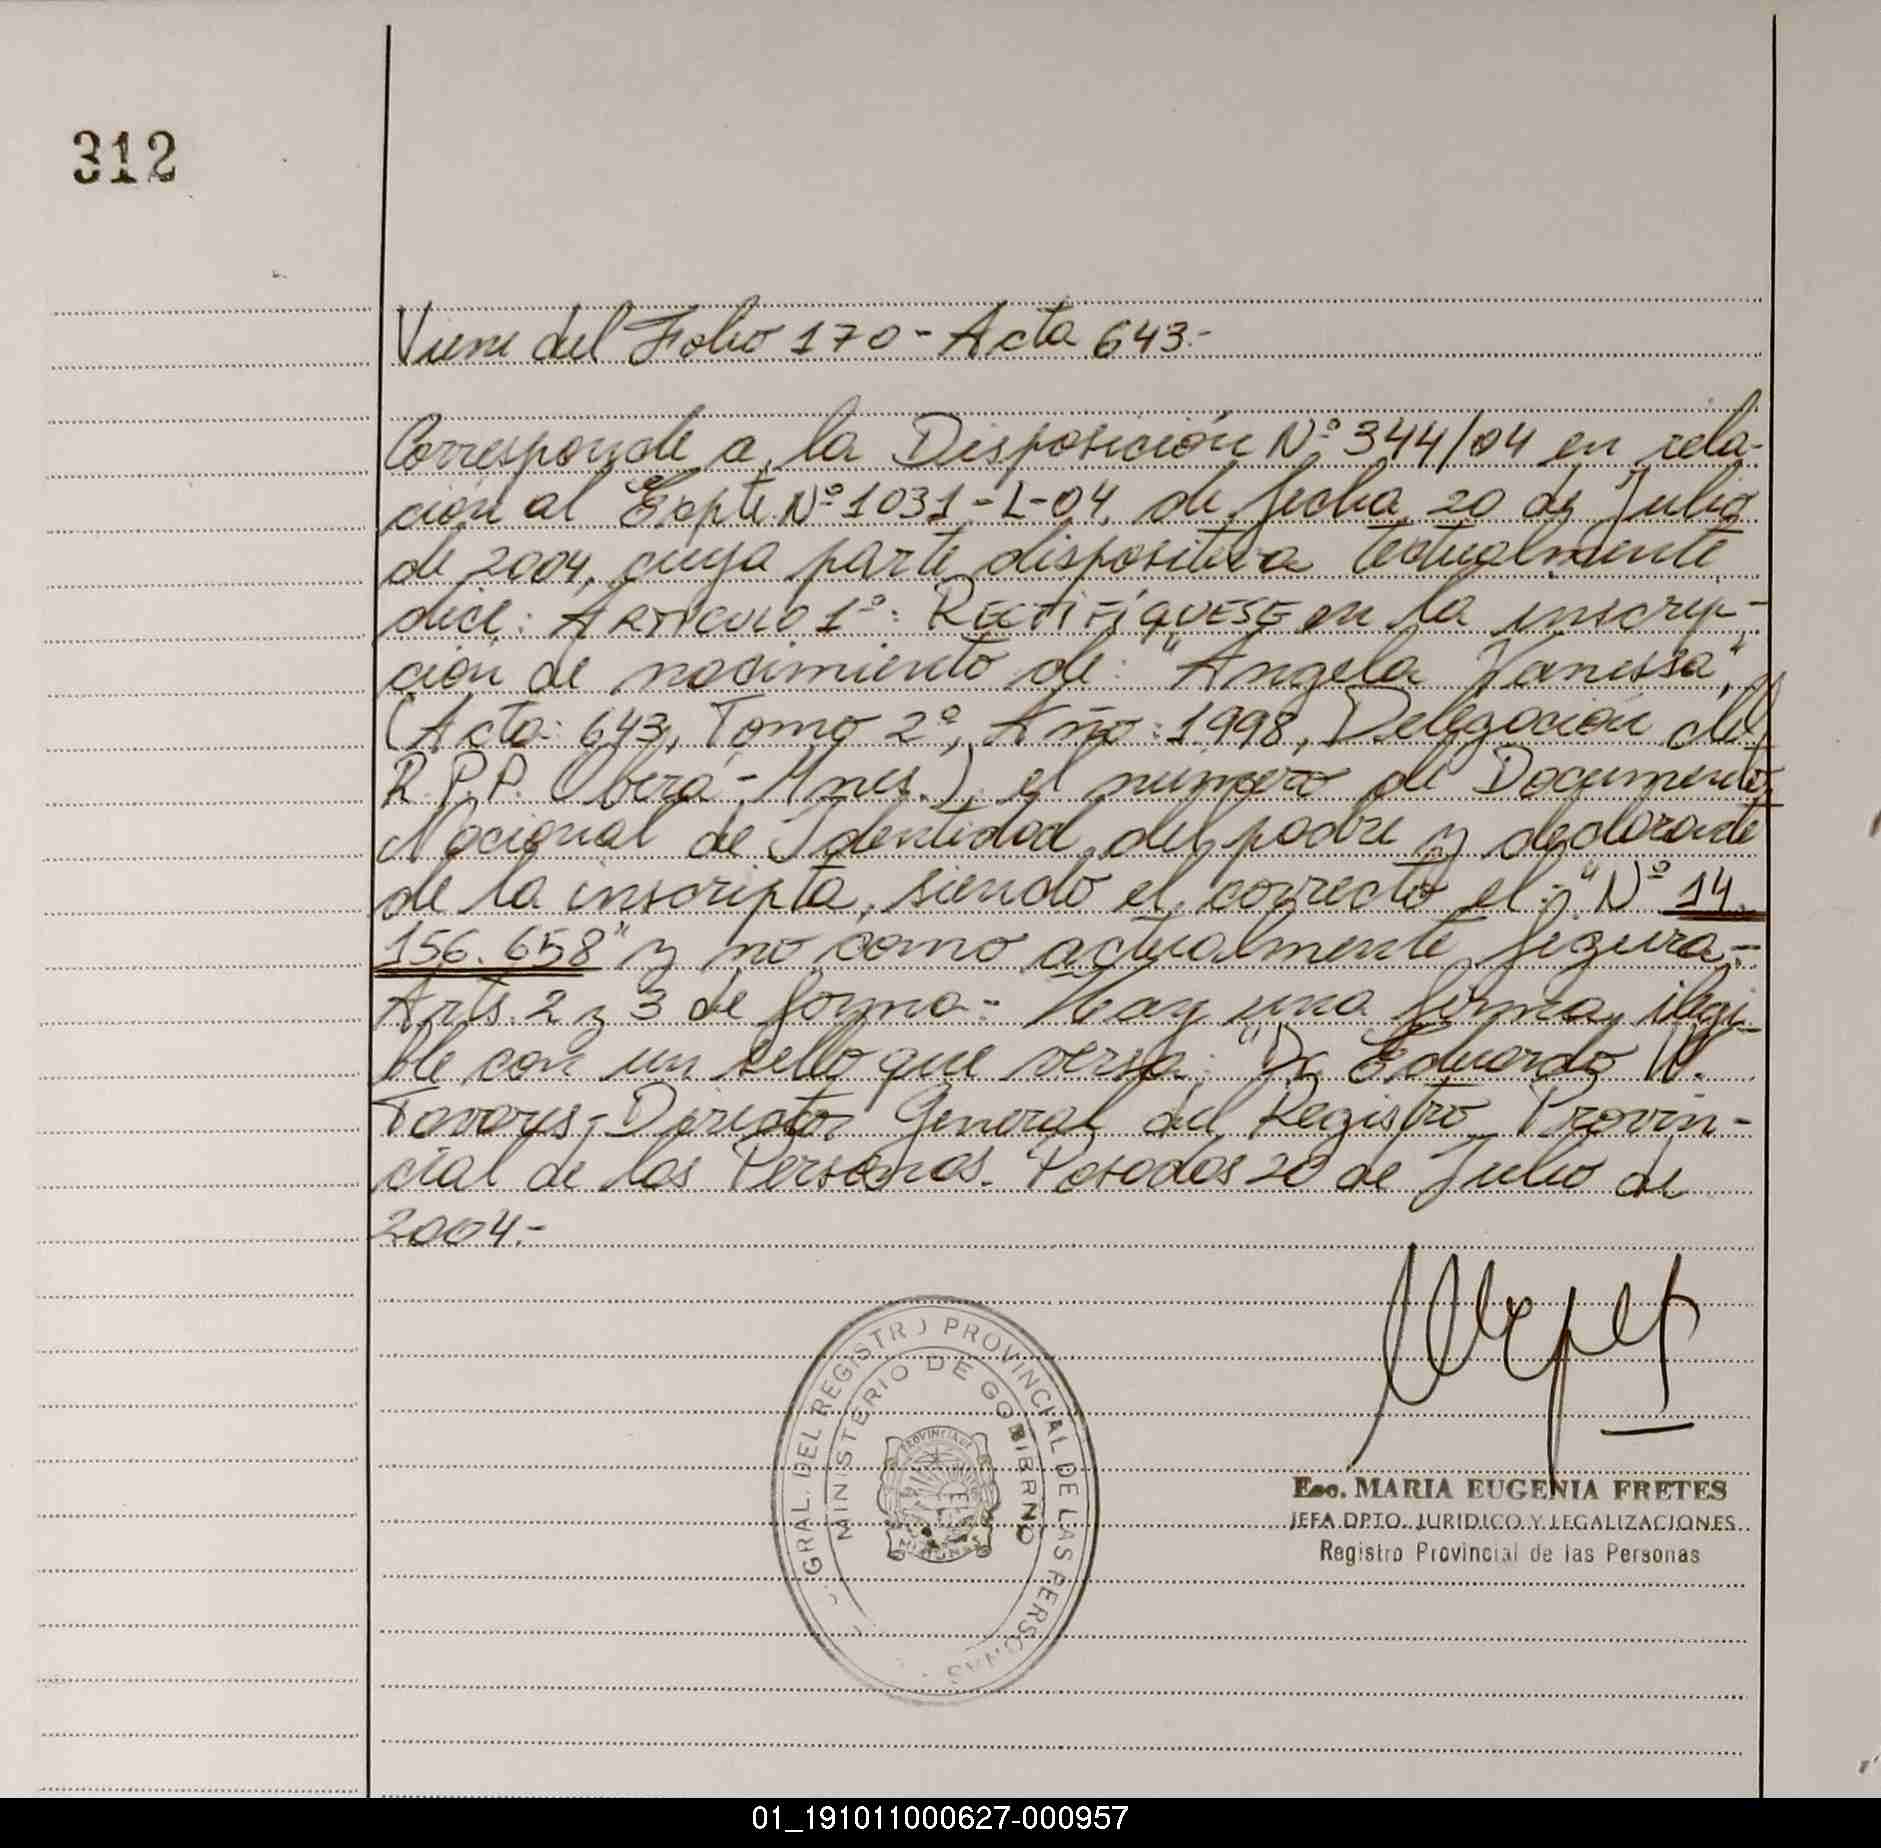 312
Viene del Folio 170 - Acta 643.-
Corresponde a la Disposición Nº 344/04 en rela-
ción al Expte Nº 1031-L-04, de fecha 20 de Julio
de 2004, cuya parte dispositiva textualmente
dice: ARTICULO 1º: RECTIFÍQUESE en la inscrip-
ción de nacimiento de: "Angela Vanessa",
(Acta: 643, Tomo 2º, Año: 1998, Delegación del
R.P.P. Oberá - Mnes.), el número de Documento
Nacional de Identidad del padre y declarante
de la inscripta, siendo el correcto el: "Nº 14.
156.658" y no como actualmente figura.-
Arts. 2 y 3 de forma.- Hay una firma ilegi-
ble con un sello que versa: "Dr. Eduardo W.
Tavares - Director General del Registro Provin-
cial de las Personas. Posadas 20 de Julio de
2004.-
GRAL. DEL REGISTRO PROVINCIAL DE LAS PERSONAS
MINISTERIO DE GOBIERNO
PROVINCIA DE
MISIONES
Esc. MARIA EUGENIA FRETES
JEFA DPTO. JURIDICO Y LEGALIZACIONES
Registro Provincial de las Personas
01_191011000627-000957